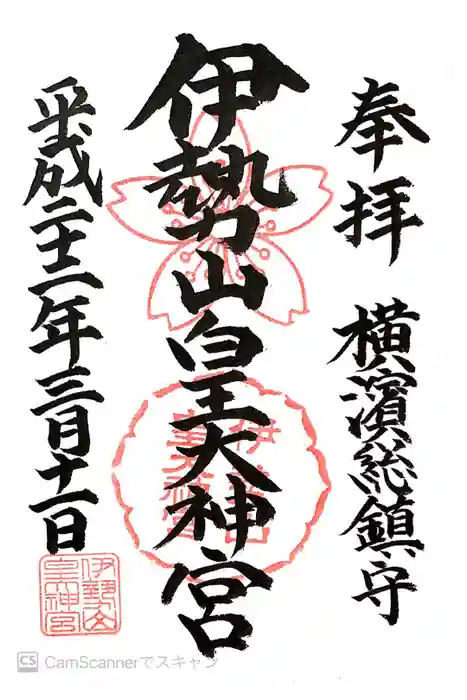 奉拝 横濱総鎮守
伊勢山皇大神宮
平成二十二年三月十一日
CS CamScannerでスキャン